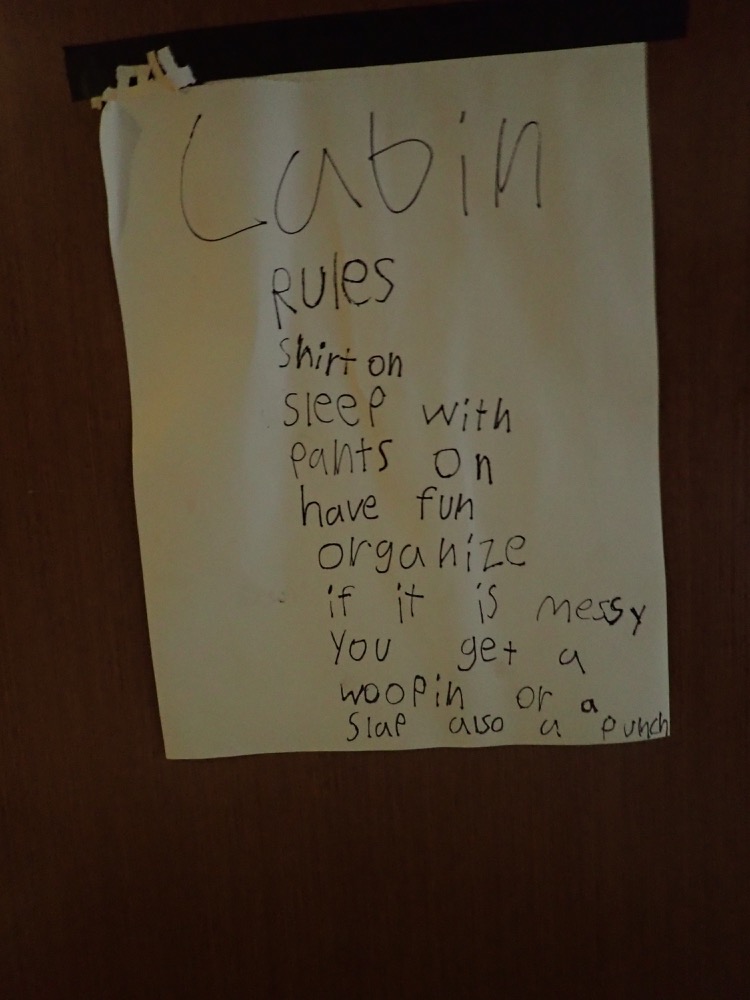 Cabin
RULES
shirt on
sleep with
pants on
have fun
organize
if it is messy
you get a
woopin or a
slap also a punch